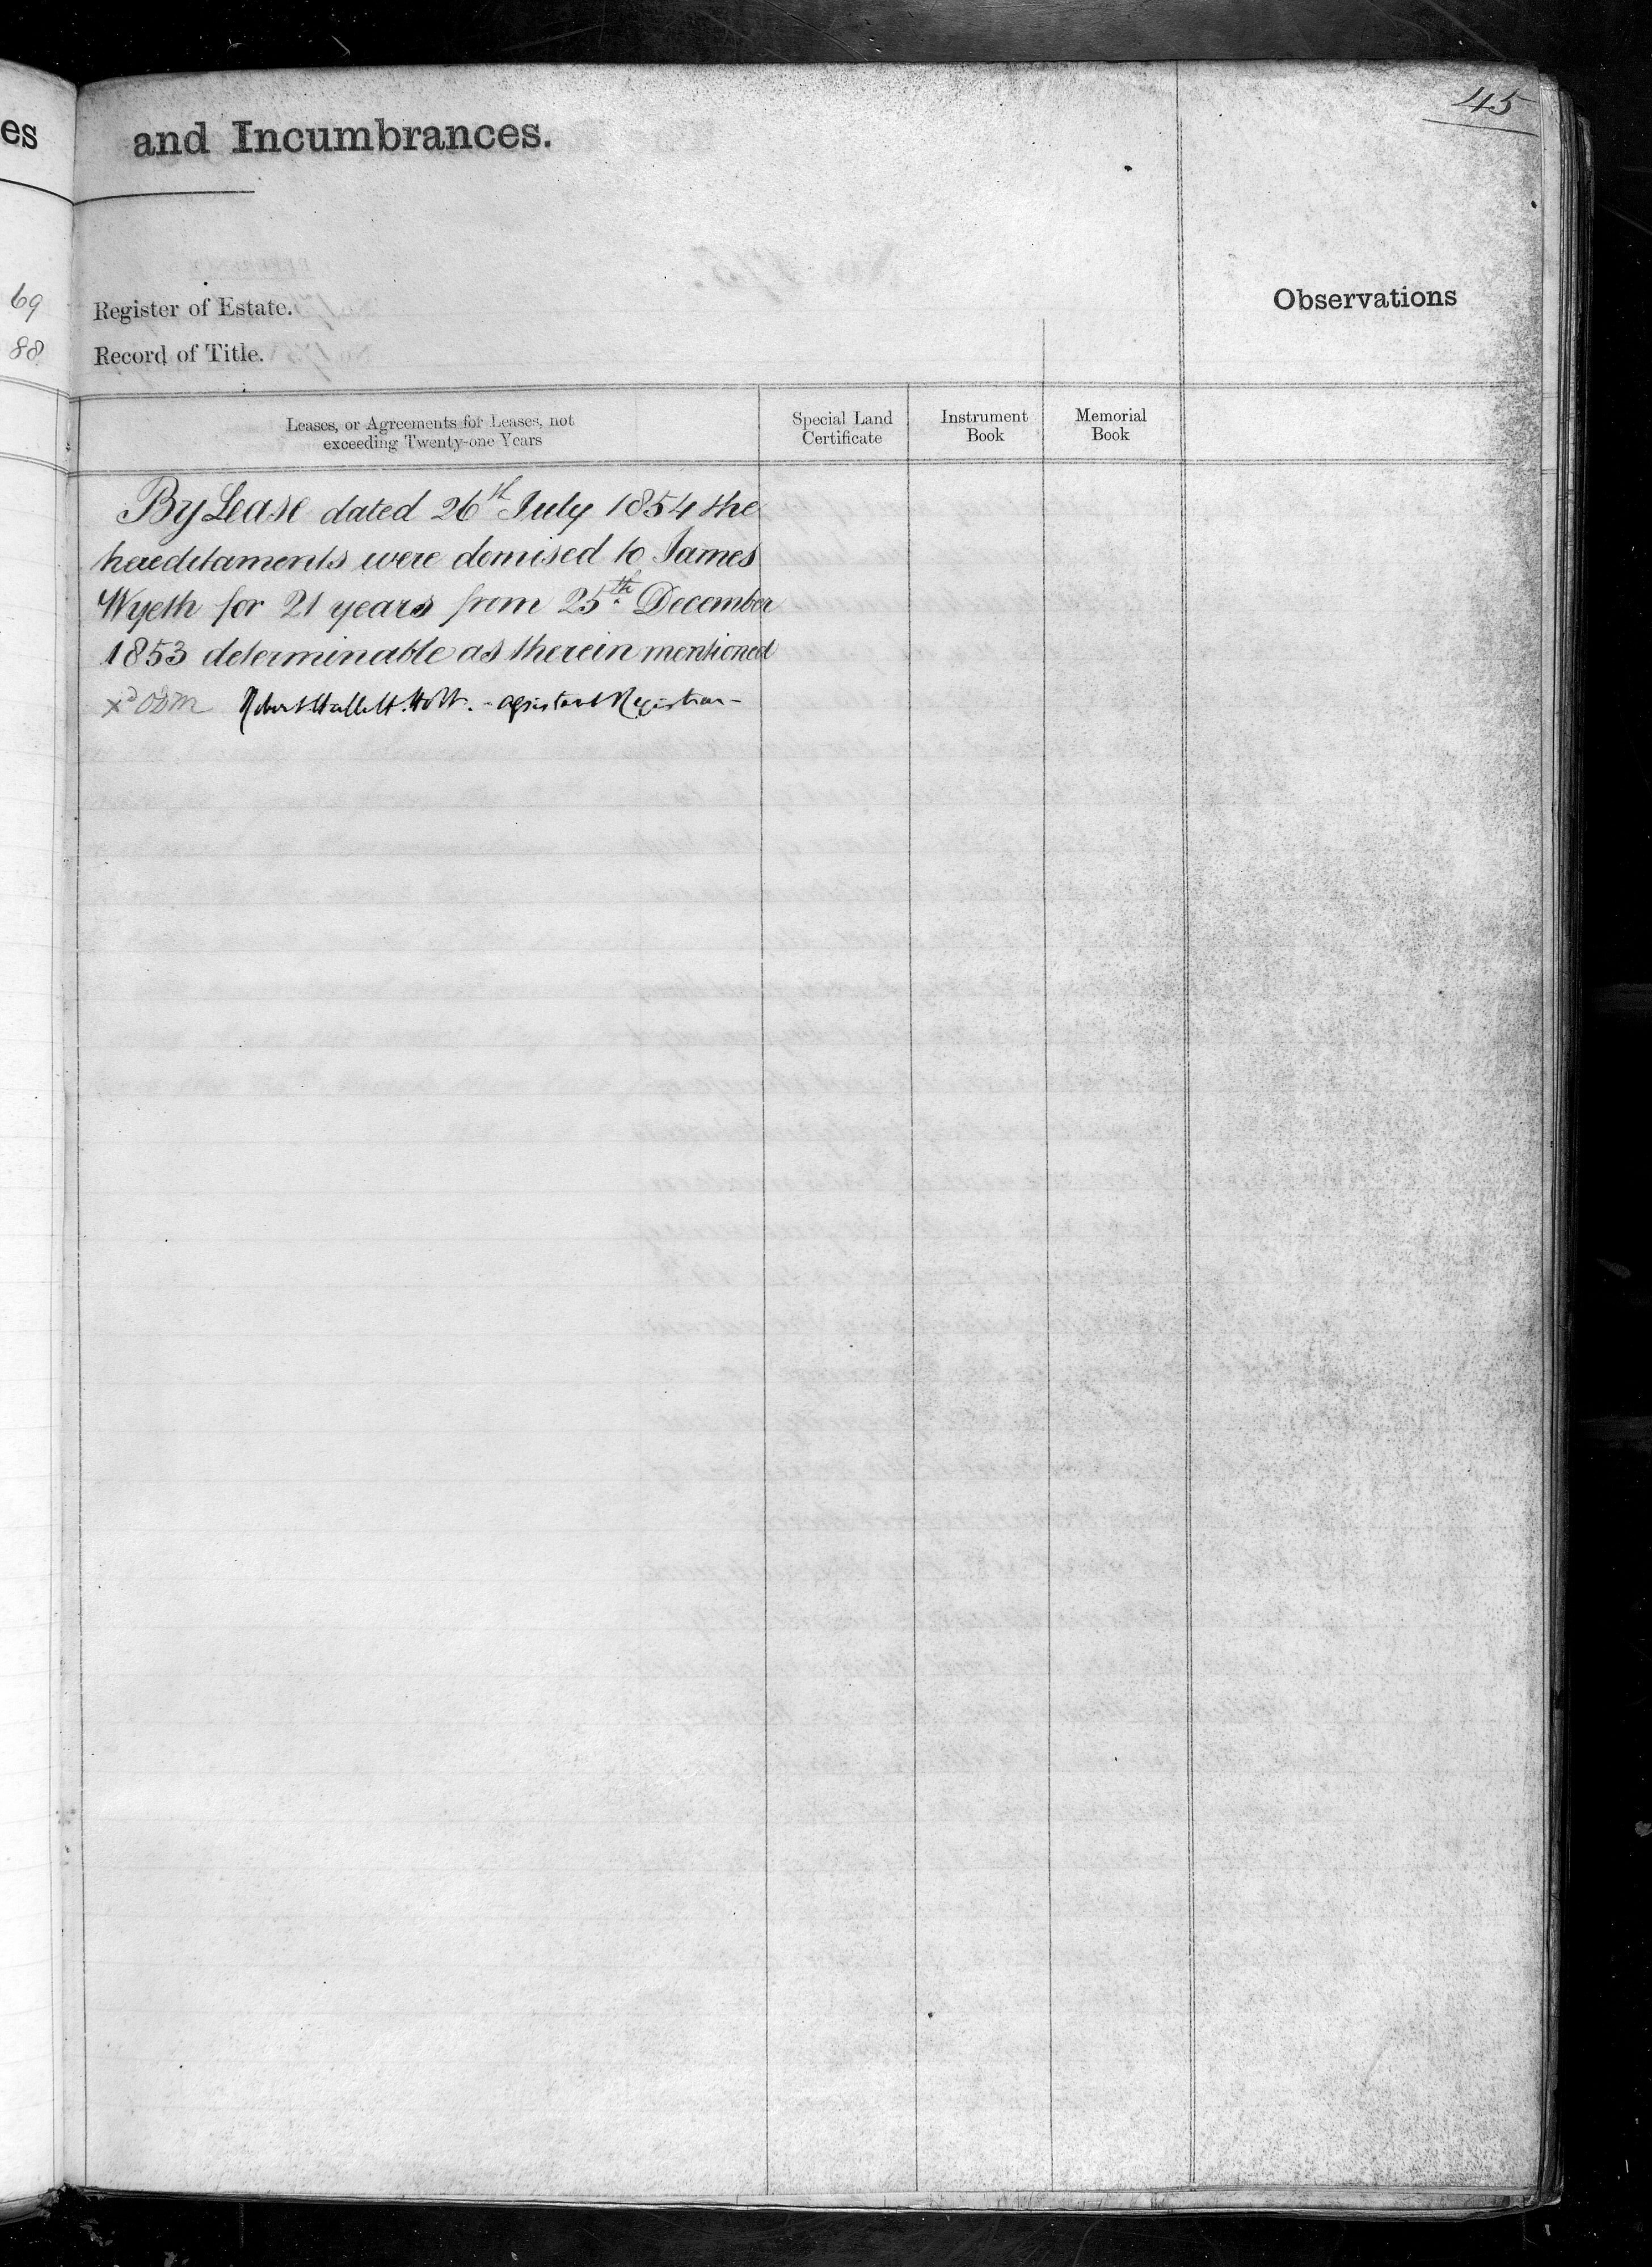 45
es
and Incumbrances.
69
Register of Estate.
Observations
88
Record of Title.
Leases, or Agreements for Leases, not
exceeding Twenty-one Years
Special Land
Certificate
Instrument
Book
Memorial
Book
By Lease dated 26th July 1854 the
hereditaments were demised to James
Wyeth for 21 years from 25th December
1853 determinable as therein mentioned
Robert Hallett Holt. - Assistant Registrar -